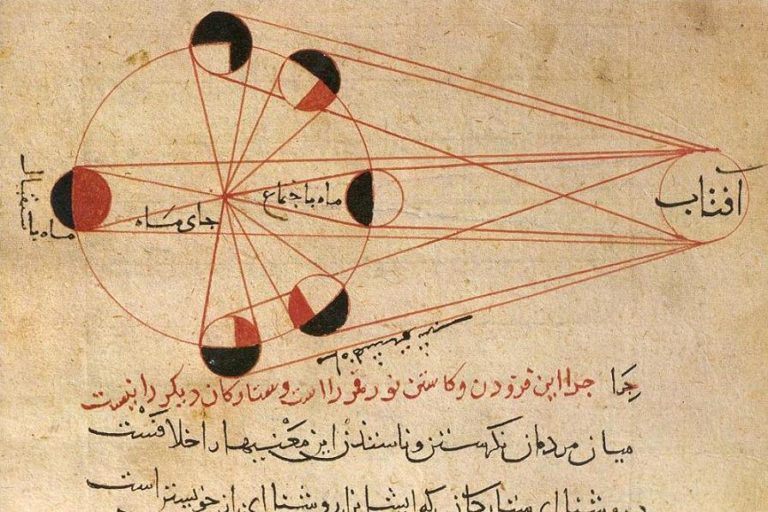 آفتاب
ماه باجتماع
جای ماه
ماه باستقبال
جرا این فزودن وکاستن نور قمر را است وستارکان دیکر را نیست
میان مردمان نکرستن این معنیها را خلافست
روشنای ستارکان روشنای از خویشتن است